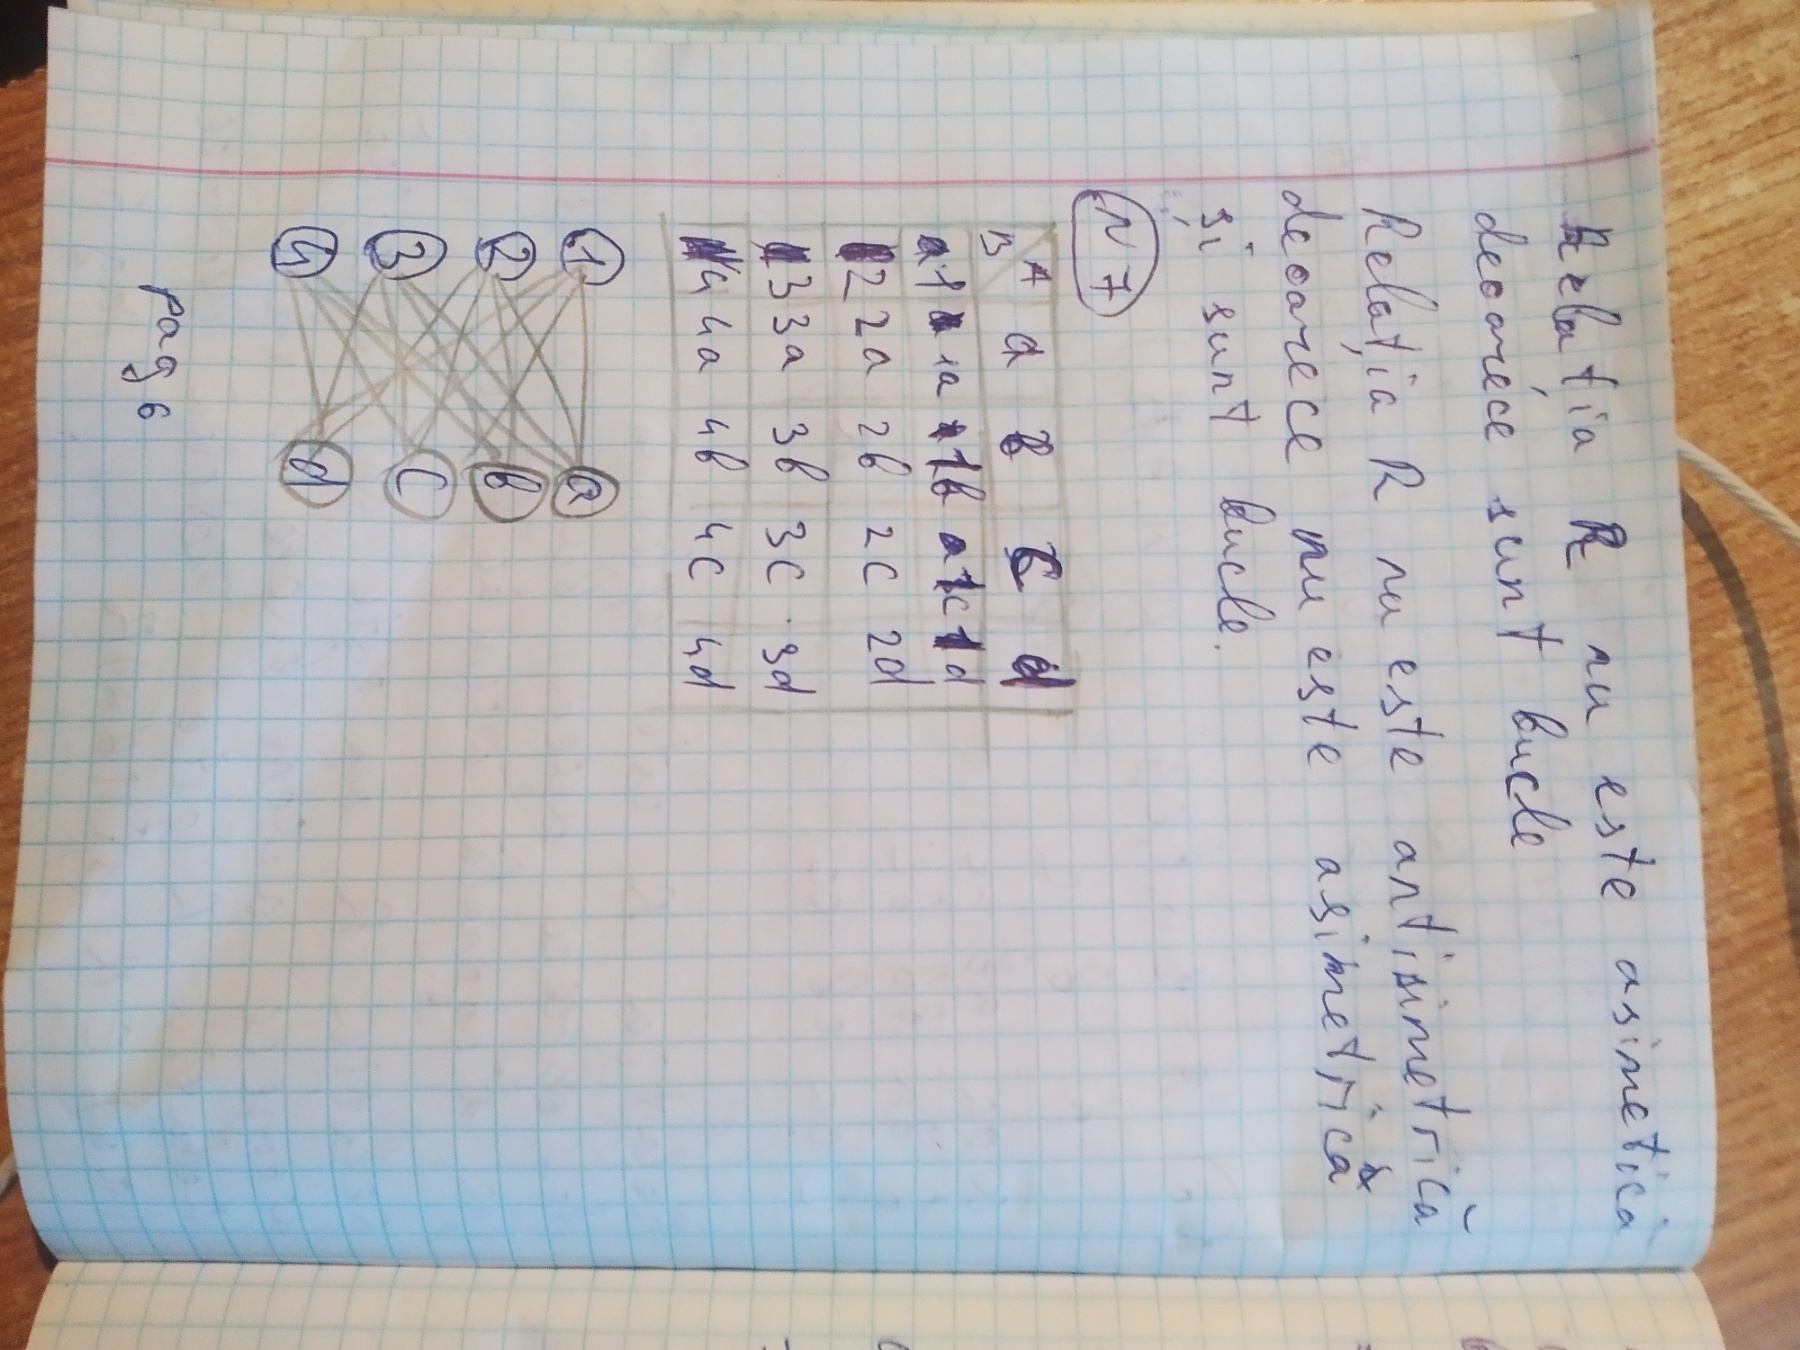 Relația R nu este asimetică
deoarece sunt bucle
Relația R nu este antisimetrică
deoarece nu este asimetrică
și sunt bucle.
N 7
B A a b c d
1 1a 1b 1c 1d
2 2a 2b 2c 2d
3 3a 3b 3c 3d
4 4a 4b 4c 4d
1 a
2 b
3 c
4 d
pag 6